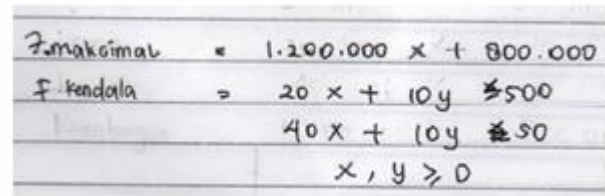 F.maksimal = 1.200.000 x + 800.000
F kendala = 20 x + 10y ≤ 500
40 x + 10y ≤ 50
x, y ≥ 0